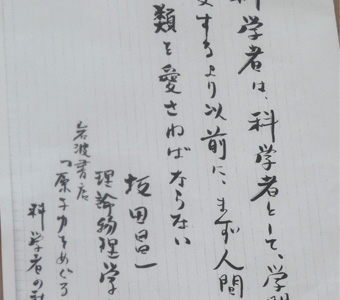 科学者は、科学者として、学
するより以前に、まず人間
類を愛さねばならない
坂田昌一
理論物理学
岩波書店
「原子力をめぐる
科学者の